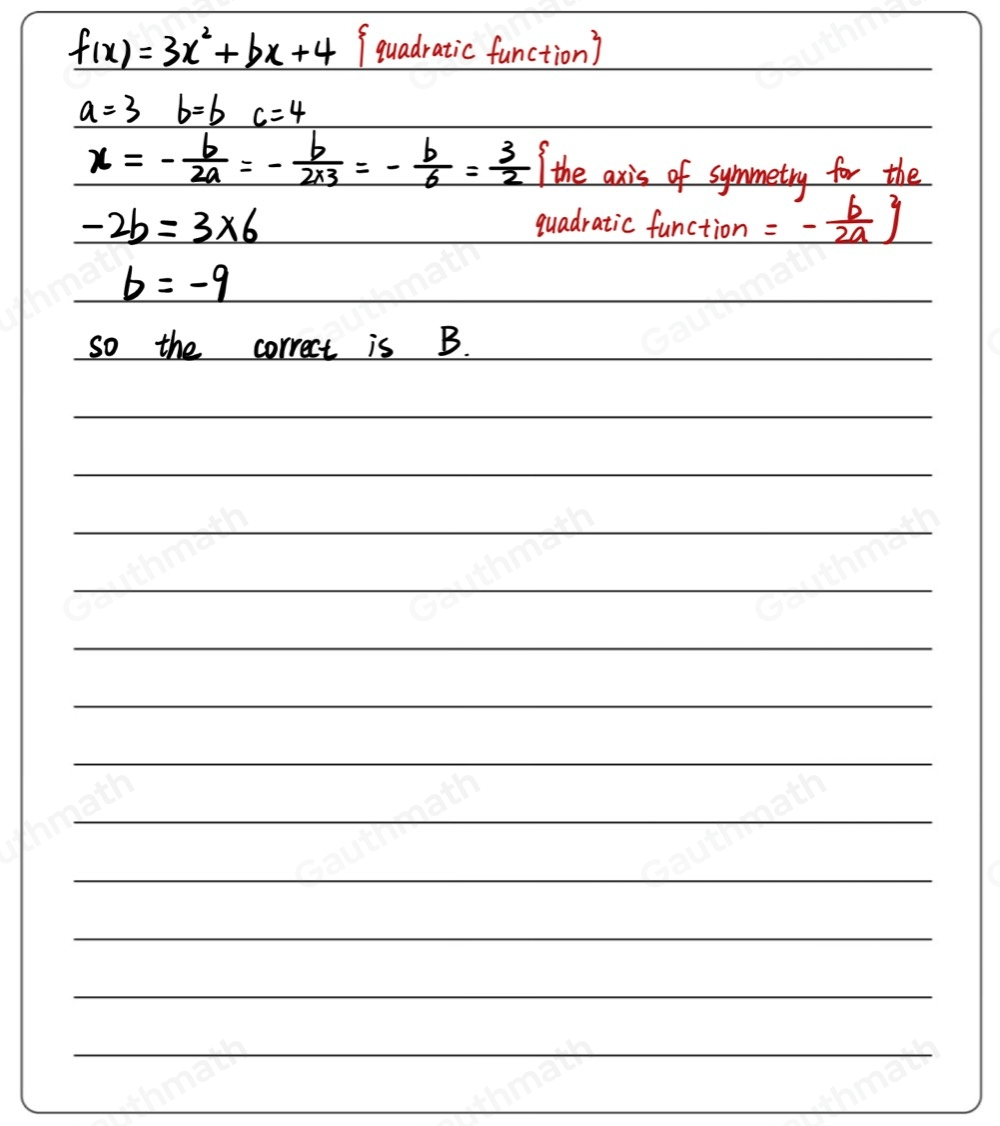 f(x) = 3x² + bx + 4 {quadratic function}
a = 3 b = b c = 4
x = - b/2a = - b/2×3 = - b/6 = 3/2 {the axis of symmetry for the
quadratic function = - b/2a }
-2b = 3×6
b = -9
so the correct is B.